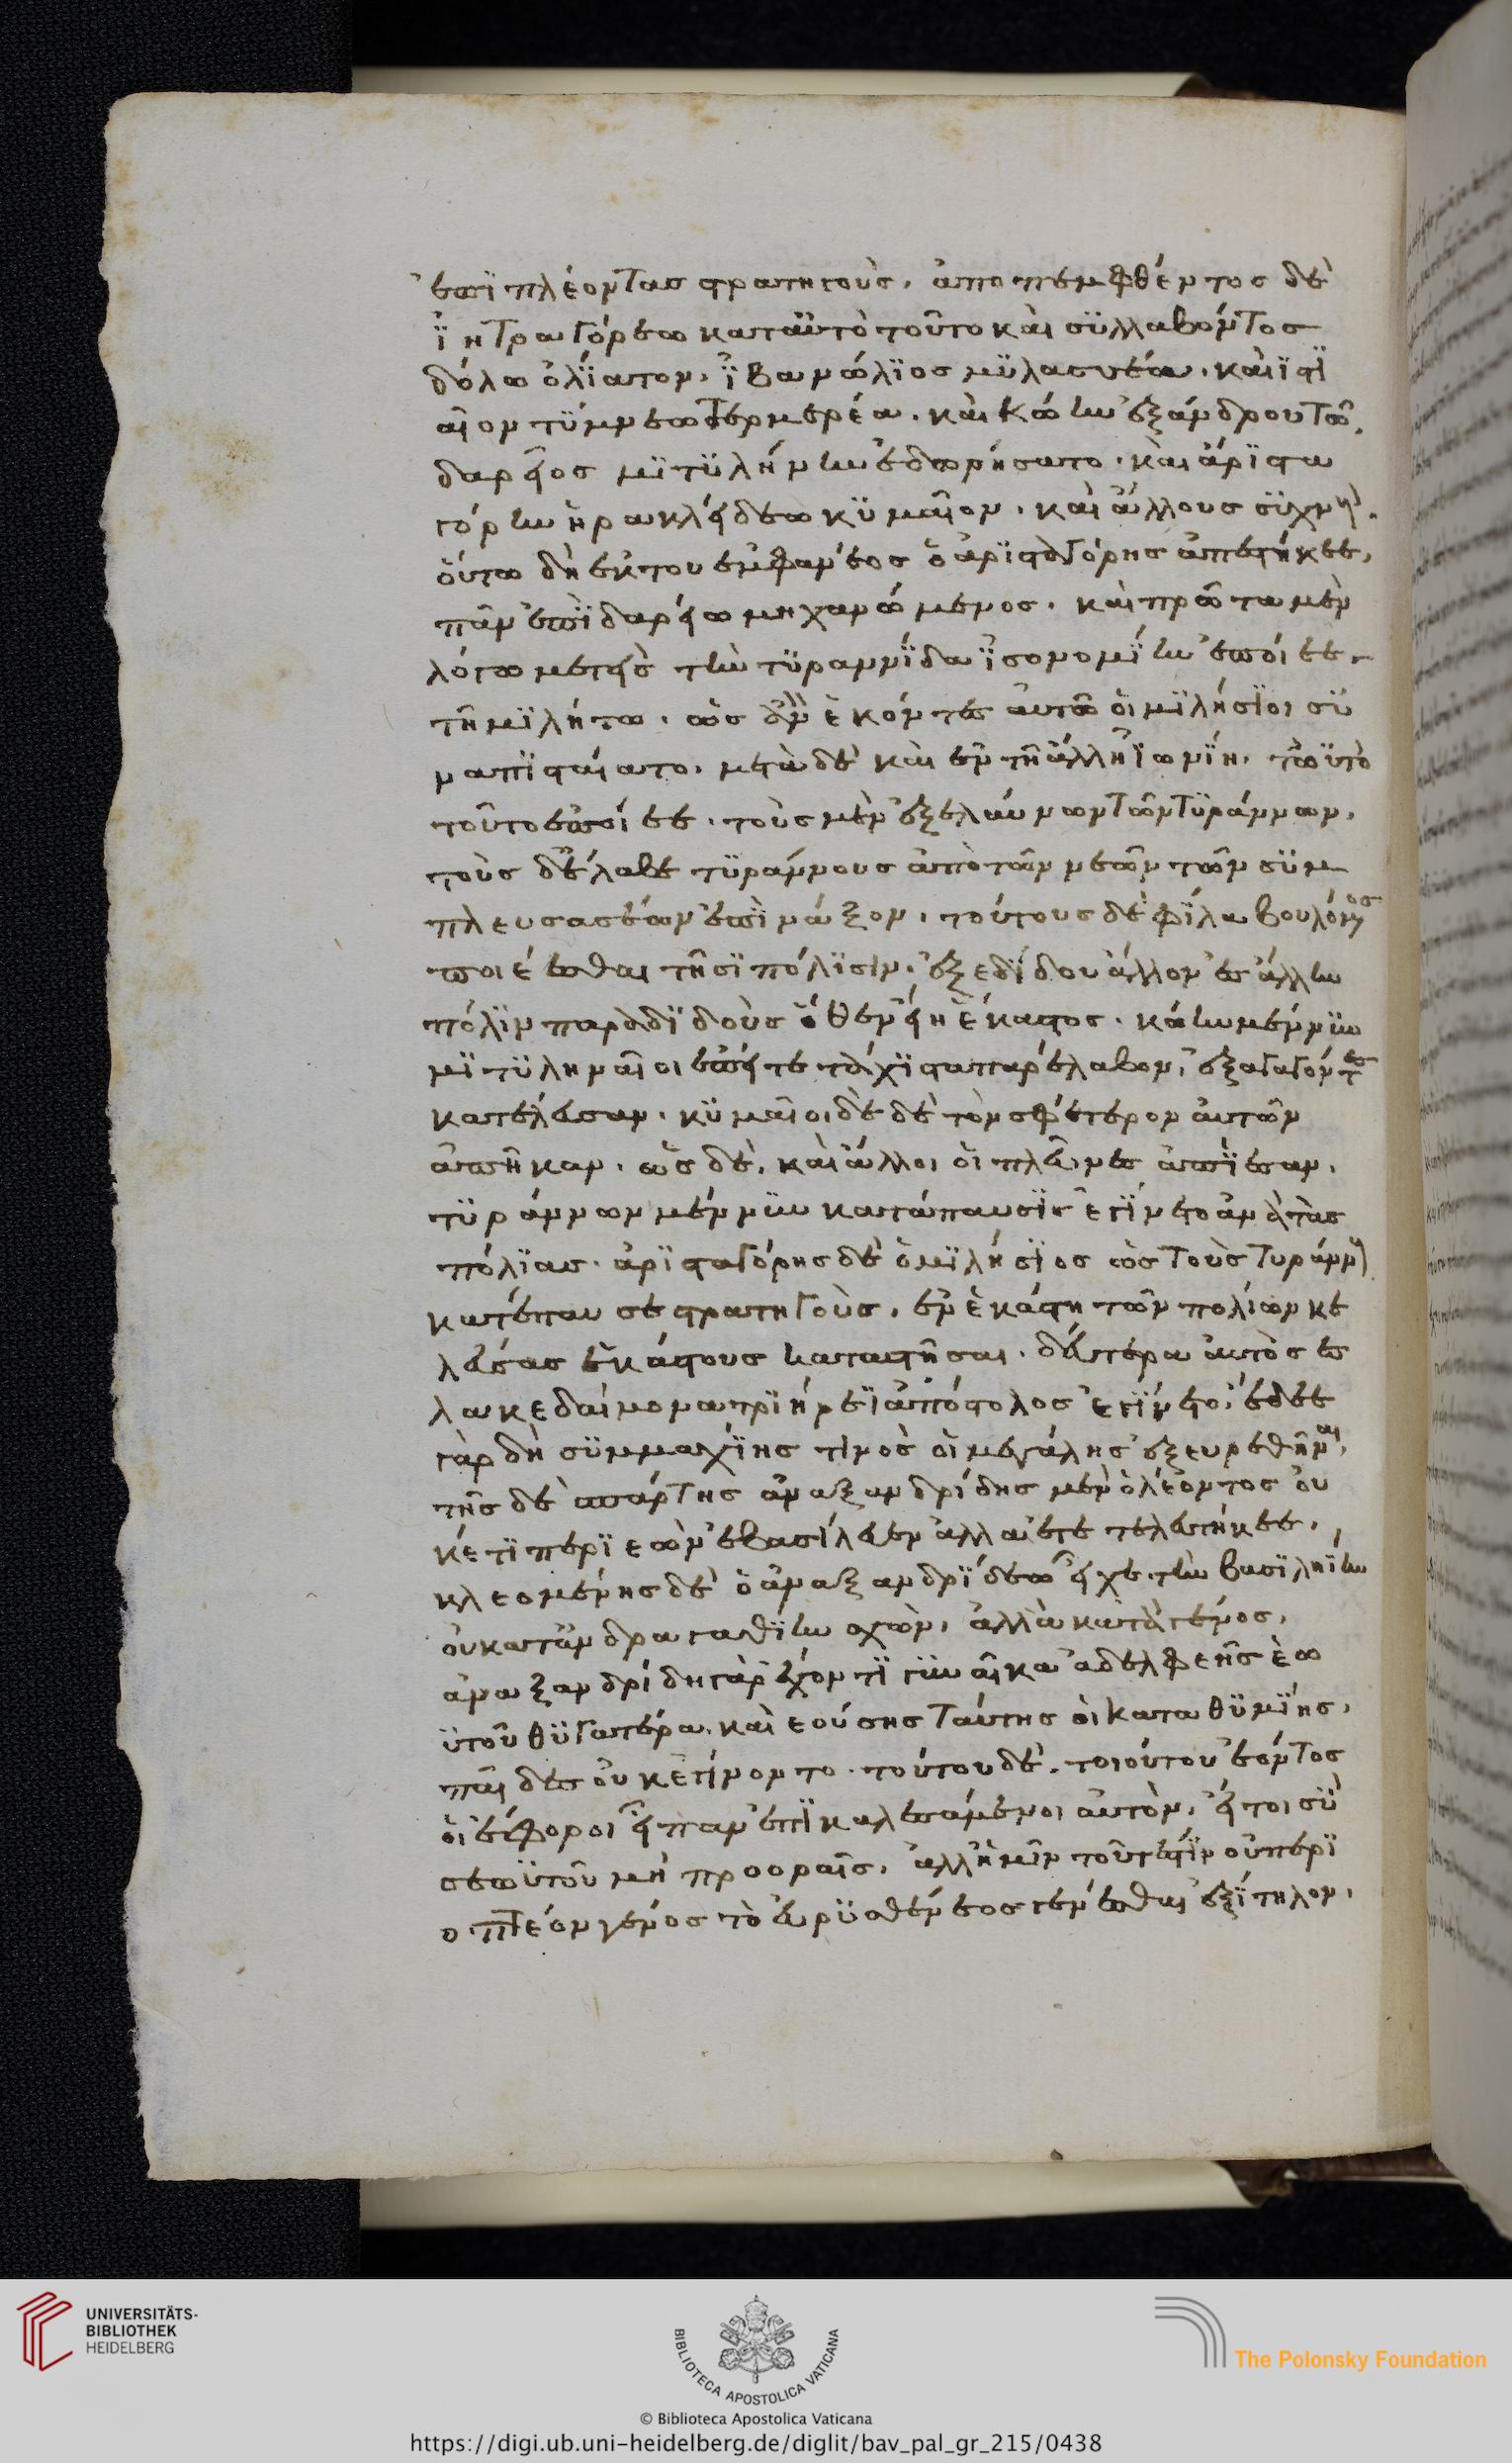 ἐπιπλέοντας στρατηγοὺς. ἀποπεμφθέντος δὲ
ἰητραγόρεω κατ αὐτὸ τοῦτο καὶ συλλαβόντος
δόλω ὀλίατον. ἰβανώλιος μυλασσέα. καὶ ἱστι
αῖον τύμνεω τερμερέα. καὶ κώην ἐξάνδρου τῶ.
δαρεῖος μιτυλήνην ἐδωρήσατο. καὶ ἀριστα
γόρην ἡρακλείδεω κυμαῖον. καὶ ἄλλους συχνοὺς.
οὕτω δὴ ἐκ του ἐμφανέος ὁ ἀρισταγόρης ἀπεστήκεε,
πᾶν ἐπὶ δαρείω μηχανώμενος. καὶ πρῶτα μὲν
λόγω μετεὶς τὴν τυραννίδα ἰσονομίην ἐποίεε.
τῆ μιλήτω. ὡς ἂν ἑκόντες αὐτῶ οἱ μιλήσιοι συ
ναπισταίατο. μετὰ δὲ καὶ ἐν τῆ ἄλλη ἰωνίη. τὠυτὸ
τοῦτο ἐποίεε. τοὺς μὲν ἐξελαύνων τῶν τυράννων.
τοὺς δ' ἔλαβε τυράννους ἀπὸ τῶν νεῶν τῶν συμ
πλευσασέων ἐπὶ νάξον. τούτους δὲ φίλα βουλόμενος
ποιέεσθαι τῆσι πόλισιν. ἐξεδίδου ἄλλον ἐς ἄλλην
πόλιν παραδιδοὺς ὅθεν εἴη ἕκαστος. κώην μέν νυν
μιτυληναῖοι ἐπείτε τάχιστα παρέλαβον, ἐξαγαγόντες
κατέλευσαν. κυμαῖοι δὲ δὲ τὸν σφέτερον αὐτῶν
ἀπῆκαν. ὣς δὲ, καὶ ἄλλοι οἱ πλεῦνες ἀπίεσαν.
τυράννων μέν νυν κατάπαυσις ἐγίνετο ἀνὰ τὰς
πόλιας. ἀρισταγόρης δὲ ὁ μιλήσιος ὡς τοὺς τυράννους
κατέπαυσε στρατηγοὺς, ἐν ἑκάστη τῶν πολίων κε
λεύσας ἑκάστους καταστῆσαι. δεύτερα αὐτὸς ἐς
λακεδαίμονα τριήρεϊ ἀπόστολος ἐγίνετο. ἔδεε
γὰρ δὴ συμμαχίης τινὸς οἱ μεγάλης ἐξευρεθῆναι,
τῆς δὲ σπάρτης ἀναξανδρίδης μὲν ὁ λέοντος οὐ
κέτι περιεὼν ἐβασίλευεν ἀλλὰ ἐτετελευτήκεε.
κλεομένης δὲ ὁ ἀναξανδρίδεω εἶχε τὴν βασιληίην
οὐ κατ' ἀνδραγαθίην σχὼν, ἀλλὰ κατὰ γένος,
ἀναξανδρίδη γὰρ ἔχοντι γυναῖκα ἀδελφεῆς ἑω
υτοῦ θυγατέρα. καὶ ἐούσης ταύτης οἱ καταθυμίης.
παῖδες οὐκ ἐγίνοντο. τούτου δὲ. τοιούτου ἐόντος
οἱ ἔφοροι εἶπαν ἐπικαλεσάμενοι αὐτὸν. εἴ τοι σὺ
σεωυτοῦ μὴ προορᾶις, ἀλλ' ἡμῖν τοῦτ' ἐστὶν οὐ περι
οπτέον γένος τὸ εὐρυσθένεος γενέσθαι ἐξίτηλον.
UNIVERSITÄTS-
BIBLIOTHEK
HEIDELBERG
BIBLIOTECA APOSTOLICA VATICANA
The Polonsky Foundation
© Biblioteca Apostolica Vaticana
https://digi.ub.uni-heidelberg.de/diglit/bav_pal_gr_215/0438